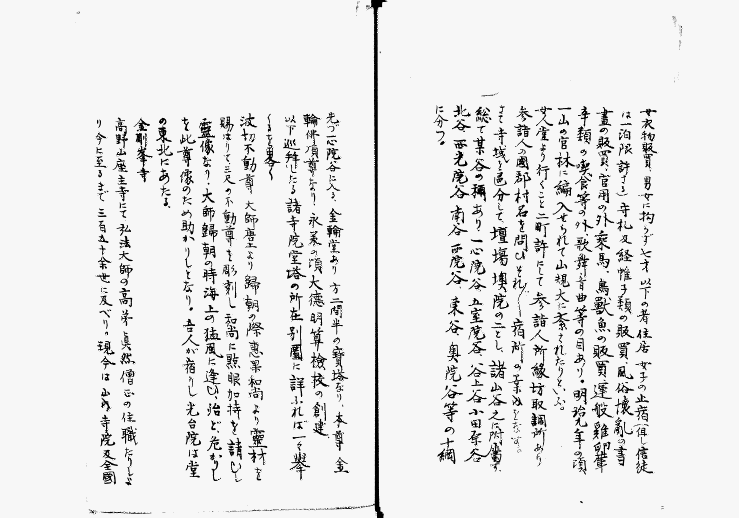 女衣物販買、男女に拘らず七才以下の者住居、女子の止宿(但し信徒
は一泊限許さる)守札及経帷子類の販買、風俗壊乱の書
畫の販買、官用の外乗馬、鳥獣魚の販買運般雞卵葷
辛類の喫食等の外、歌舞音曲等の目あり。明治元年の頃
一山の官林に編入せられて山規大に紊れたりといふ。
女人堂より行くこと二町許にして参詣人所縁坊取調所あり
参詣人の國郡村名を問ひそれ〱宿所の
寺域を區分して、壇場奥院の二とし、諸山谷之に附屬す。
総て某谷の稱あり、一心院谷、五室院谷、谷上谷小田原谷
北谷、西光院谷、南谷、西院谷、東谷、奥院谷等の十綱
に分つ。
先づ一心院谷に入る、金輪堂あり方二間半の寶塔なり、本尊金
輪佛頂尊なり、永承の頃大徳明算檢校の創建、
以下巡拜したる諸寺院堂塔の所在別圖に詳ふれば一々擧
くるを畧く
波切不動尊 大師唐より歸朝の際惠果和尚より靈材を
賜はりて三叉の不動尊を彫刻し和尚に點眼加持を請ひし
靈像なり、大師歸朝の時海上の猛風に逢ひ殆ど危かりし
を此尊像のため助かりしとなり。吾人が宿りし光台院は堂
の東北にあたる。
金剛峯寺
高野山座主寺にて弘法大師の高弟真然僧正の住職たりしよ
り今に至るまで三百五十余世に及べり。現今は山内寺院及全國